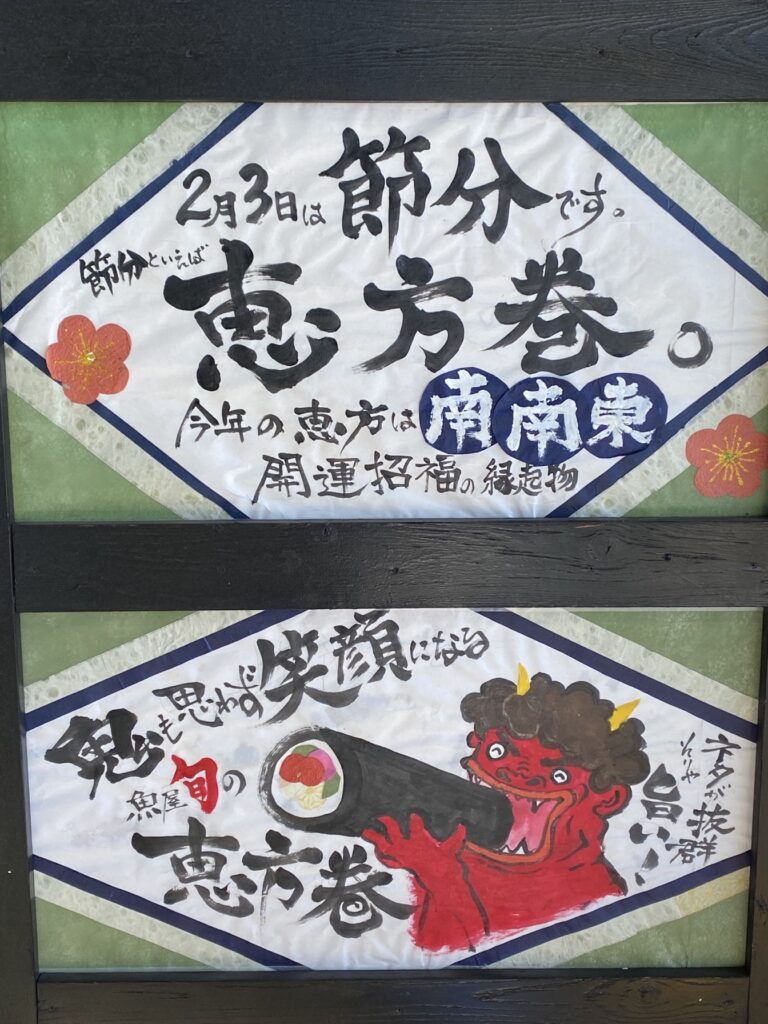 2月3日は節分です。
節分といえば
恵方巻。
今年の恵方は南南東
開運招福の縁起物
鬼も思わず笑顔になる
魚屋旬の
恵方巻
ネタが抜群
そりゃ
旨い！